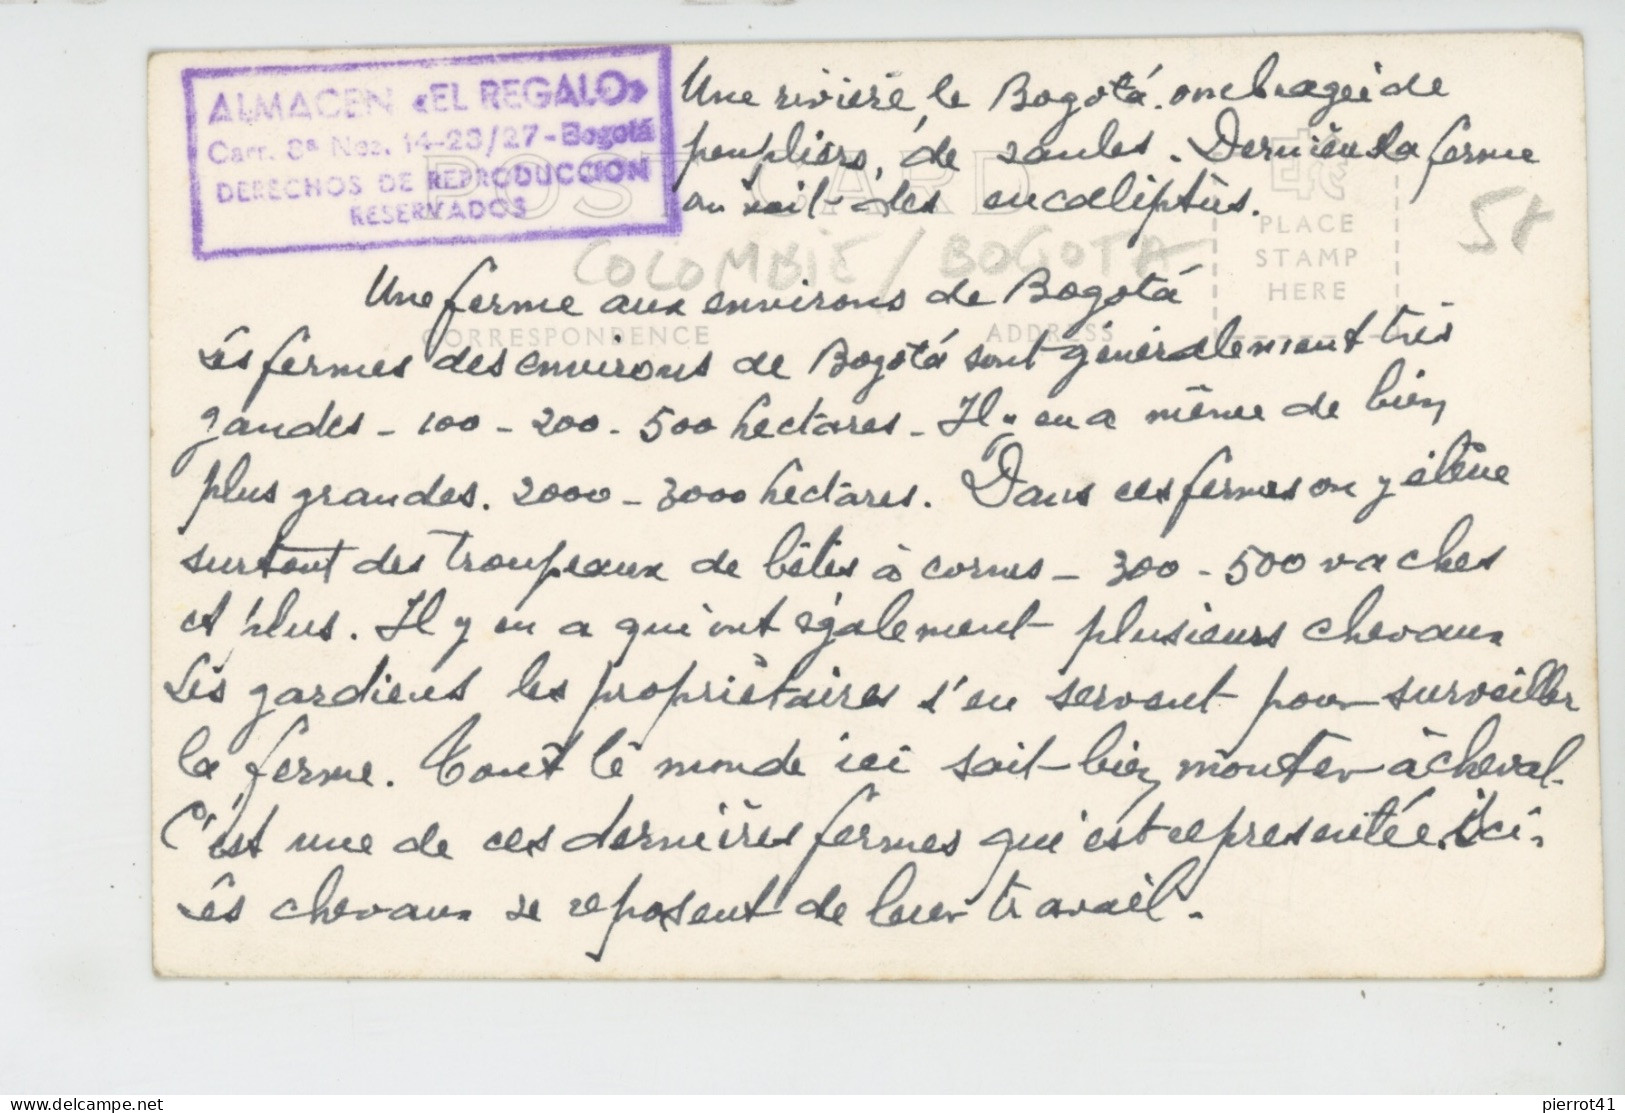 ALMACEN «EL REGALO»
Carr. 8ª Nos. 14-23/27 - Bogotá
DERECHOS DE REPRODUCCION
RESERVADOS
Une rivière le Bogotá. ombragée de
peupliers, de saules. Derrière la ferme
on voit des eucaliptùs.
POST CARD
PLACE
STAMP
HERE
COLOMBIE / BOGOTA
CORRESPONDENCE
ADDRESS
Une ferme aux environs de Bogotá
Les fermes des environs de Bogotá sont généralement très
grandes - 100 - 200 - 500 hectares - Il y en a même de bien
plus grandes. 2000 - 3000 hectares. Dans ces fermes on y élève
surtout des troupeaux de bêtes à cornes - 300 - 500 vaches
et plus. Il y en a qui ont également plusieurs chevaux
Les gardiens les propriétaires s'en servent pour surveiller
la ferme. Tout le monde ici sait bien monter à cheval.
C'est une de ces dernières fermes qui est representée ici.
Les chevaux se reposent de leur travail.
pierrot41